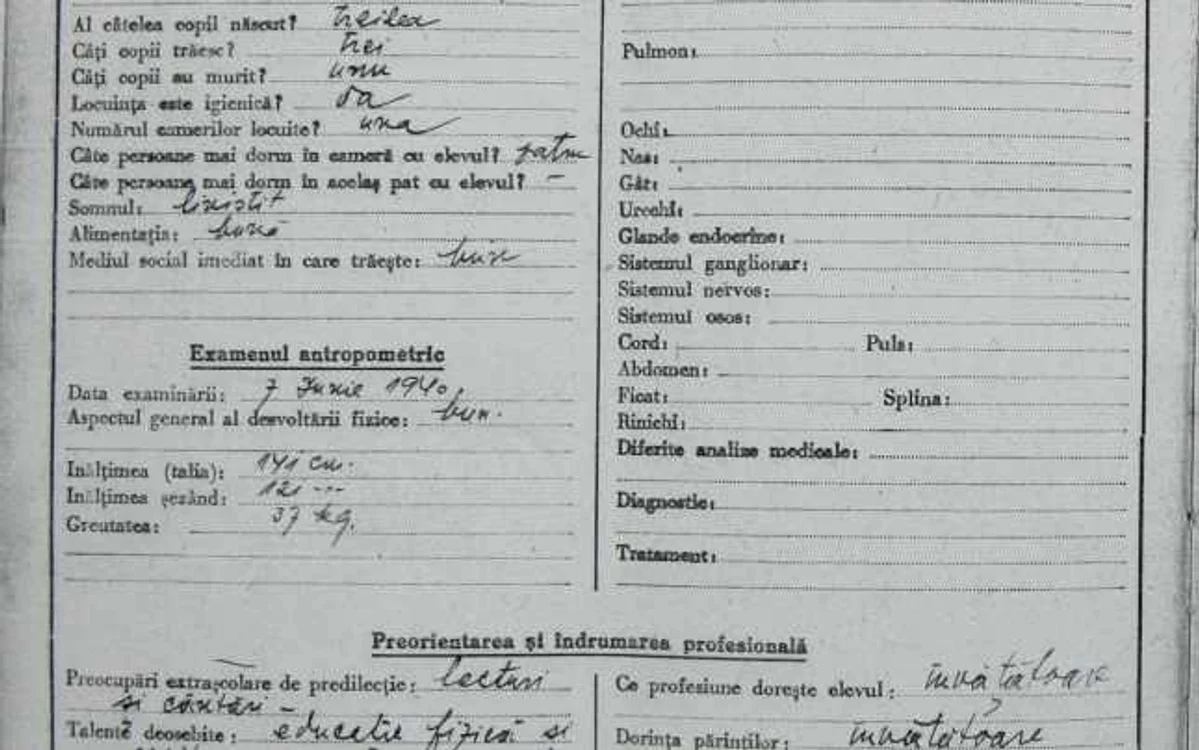 Al câtelea copil născut? treilea
Câți copii trăesc? trei
Câți copii au murit? unu
Locuința este igienică? da
Numărul camerilor locuite? una
Câte persoane mai dorm în cameră cu elevul? patru
Câte persoane mai dorm în acelaș pat cu elevul? –
Somnul: liniștit
Alimentația: bună
Mediul social imediat în care trăește: bun
Examenul antropometric
Data examinării: 7 Iunie 1940
Aspectul general al desvoltării fizice: bun.
Inălțimea (talia): 141 cm.
Inălțimea șezând: 121 ---
Greutatea: 37 kg.
Pulmon:
Ochi:
Nas:
Gât:
Urechi:
Glande endocrine:
Sistemul ganglionar:
Sistemul nervos:
Sistemul osos:
Cord: Puls:
Abdomen:
Ficat: Splina:
Rinichi:
Diferite analize medicale:
Diagnostic:
Tratament:
Preorientarea și îndrumarea profesională
Preocupări extrașcolare de predilecție: lecturi
si cântări –
Talente deosebite: educatie fizică si
Ce profesiune dorește elevul: învățătoare
Dorința părinților: învățătoare